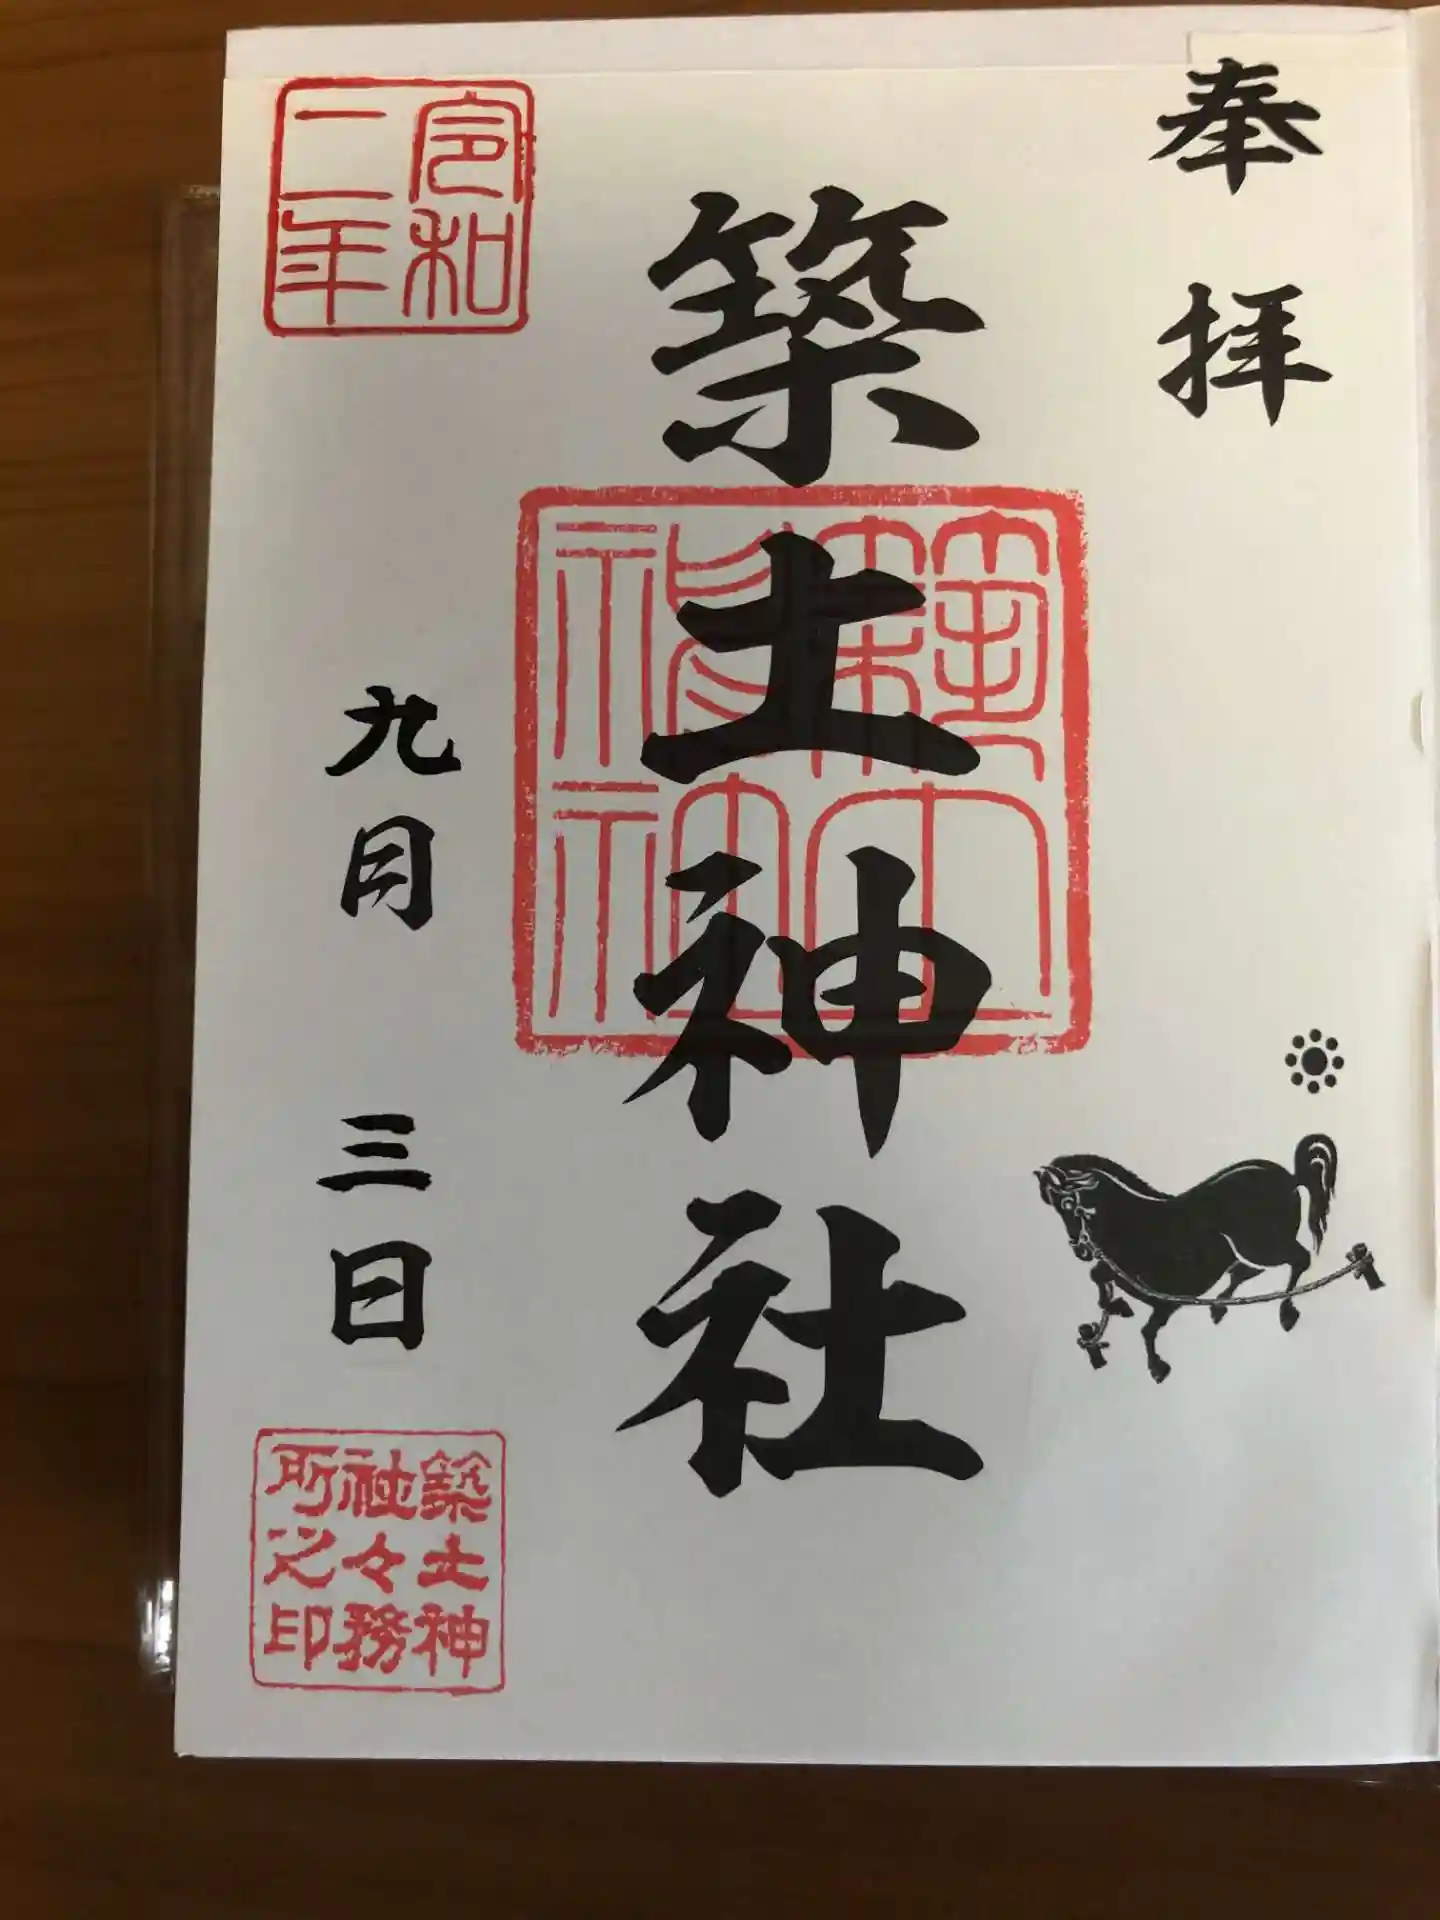 奉拝
築土神社
築土神社
令和二年
九月三日
築土神社々務所之印